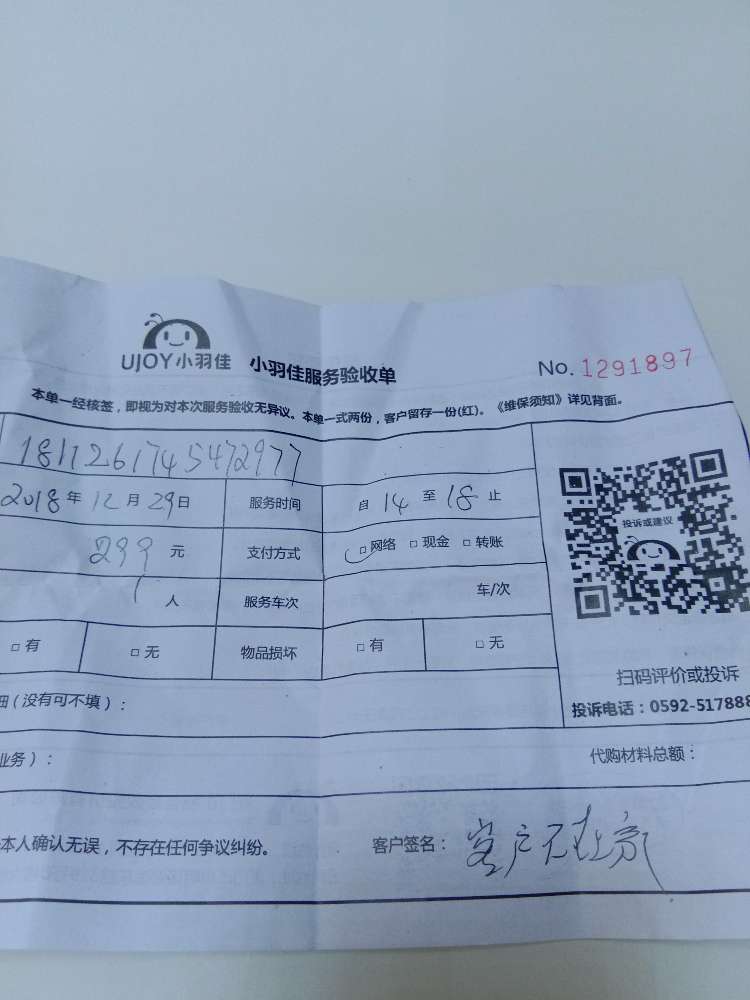 UJOY小羽佳 小羽佳服务验收单 No. 1291897
本单一经核签，即视为对本次服务验收无异议。本单一式两份，客户留存一份(红)。《维保须知》详见背面。
1811261745472977
2018年12月29日 服务时间 自14至18止
299元 支付方式 □网络 □现金 □转账
1人 服务车次 车/次
□有 □无 物品损坏 □有 □无
投诉或建议
扫码评价或投诉
细(没有可不填)：
投诉电话：0592-517888
业务)： 代购材料总额：
本人确认无误，不存在任何争议纠纷。 客户签名：客户不在家